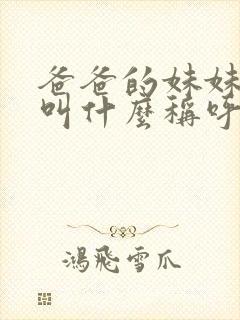 爸爸的妹妹
叫什麼稱呼
鴻飛雪爪